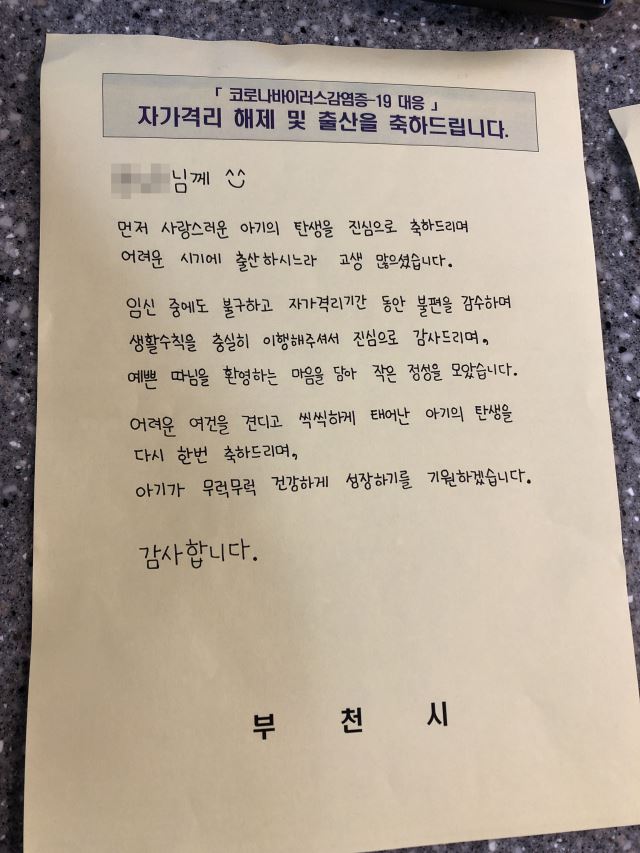 「 코로나바이러스감염증-19 대응 」
자가격리 해제 및 출산을 축하드립니다.
님께
먼저 사랑스러운 아기의 탄생을 진심으로 축하드리며
어려운 시기에 출산하시느라 고생 많으셨습니다.
임신 중에도 불구하고 자가격리기간 동안 불편을 감수하며
생활수칙을 충실히 이행해주셔서 진심으로 감사드리며,
예쁜 따님을 환영하는 마음을 담아 작은 정성을 모았습니다.
어려운 여건을 견디고 씩씩하게 태어난 아기의 탄생을
다시 한번 축하드리며,
아기가 무럭무럭 건강하게 성장하기를 기원하겠습니다.
감사합니다.
부 천 시